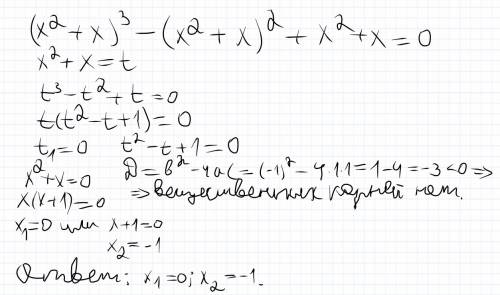 (x² + x)³ − (x² + x)² + x² + x = 0
x² + x = t
t³ − t² + t = 0
t(t² − t + 1) = 0
t₁ = 0 t² − t + 1 = 0
x² + x = 0 D = b² − 4ac = (−1)² − 4·1·1 = 1 − 4 = −3 < 0 ⇒
x(x+1) = 0 ⇒ вещественных корней нет.
x₁ = 0 или x + 1 = 0
x₂ = −1
Ответ: x₁ = 0; x₂ = −1.